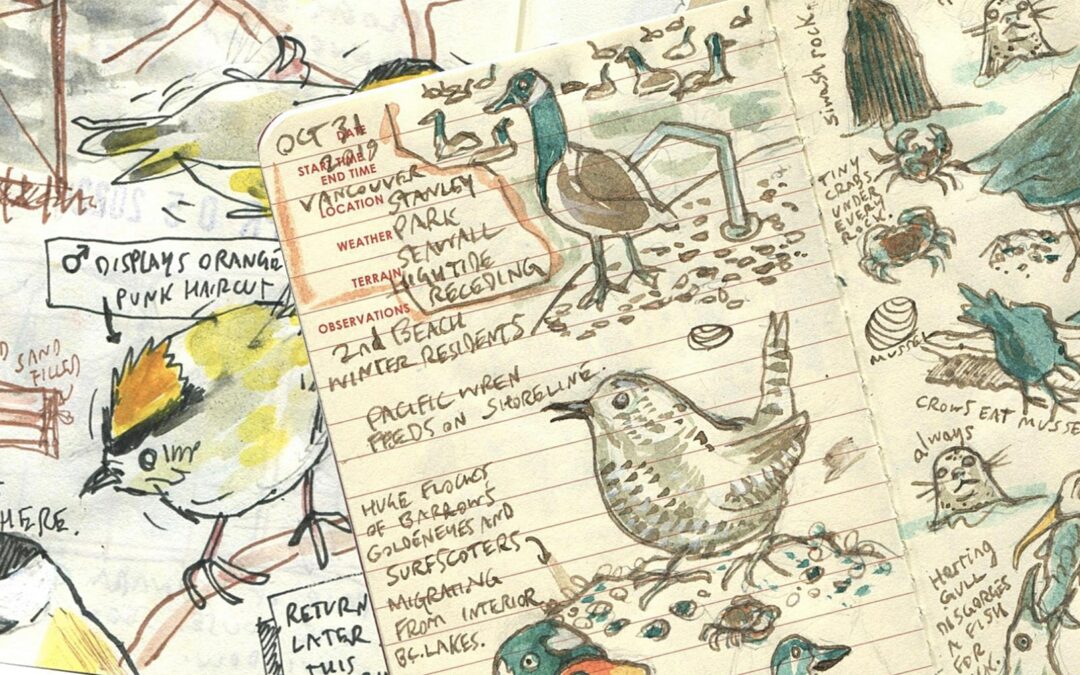 ♂ DISPLAYS ORANGE
PUNK HAIRCUT
SAND
FILLED
HERE.
RETURN
LATER
THIS
OCT 31
DATE
2019
START TIME
END TIME
VANCOUVER
LOCATION
STANLEY
PARK
WEATHER
SEAWALL
TERRAIN
HIGHTIDE
RECEDING
OBSERVATIONS
2nd BEACH
WINTER RESIDENTS
PACIFIC WREN
FEEDS ON SHORELINE.
HUGE FLOCKS
OF BARROWS
GOLDENEYES AND
SURFSCOTERS
MIGRATING
FROM INTERIOR
BC. LAKES.
Siwash rock.
TINY
CRABS
UNDER
EVERY
ROCK.
MUSSEL
CROWS EAT MUSSE
always
Herring
GULL
DISGORGES
A FISH
FOR